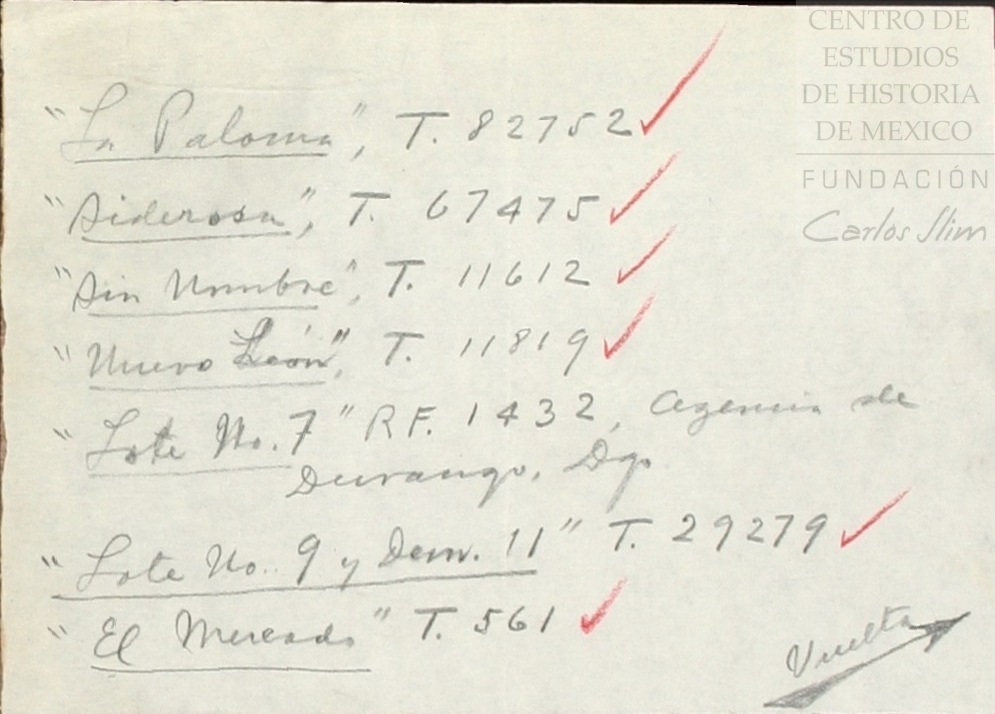 CENTRO DE
ESTUDIOS
DE HISTORIA
DE MEXICO
FUNDACIÓN
Carlos Slim
"La Paloma", T. 82752
"Siderosa", T. 67475
"Sin Nombre", T. 11612
"Nuevo León", T. 11819
"Lote No. 7" R.F. 1432, Agencia de
Durango, Dgo.
"Lote No. 9 y Dem. 11" T. 29279
"El Mercado" T. 561
Vuelta